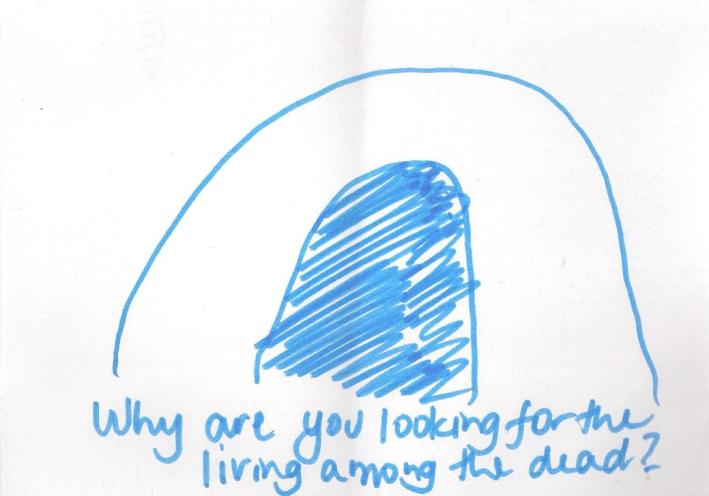 Why are you looking for the
living among the dead?